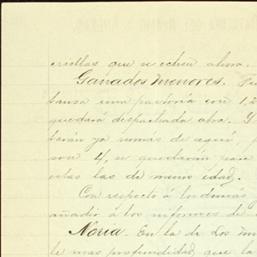 criollas que se echen ahora.
Ganados menores.
tansa una parioria con 1,2
quedará despachada otra. Y
tarán ya nomás de aquí,
son 4, se quedarán para
estas las de menos edad.
Con respecto á los demás
añadir á los informes de
Noria. En la de Los
le mas profundidad, que la